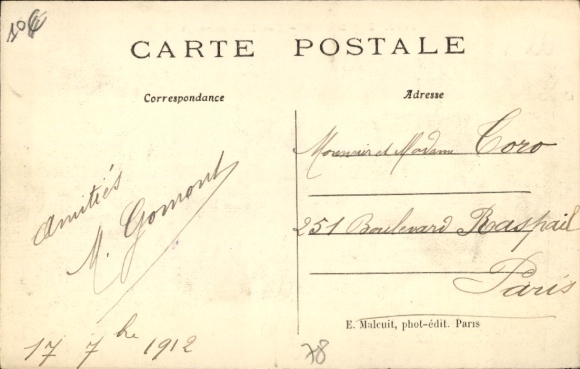 10€
CARTE POSTALE
Correspondance
Adresse
Amitiés
M. Gomont
17 7bre 1912
Monsieur et Madame Coro
251 Boulevard Raspail
Paris
E. Malcuit, phot-édit. Paris
78